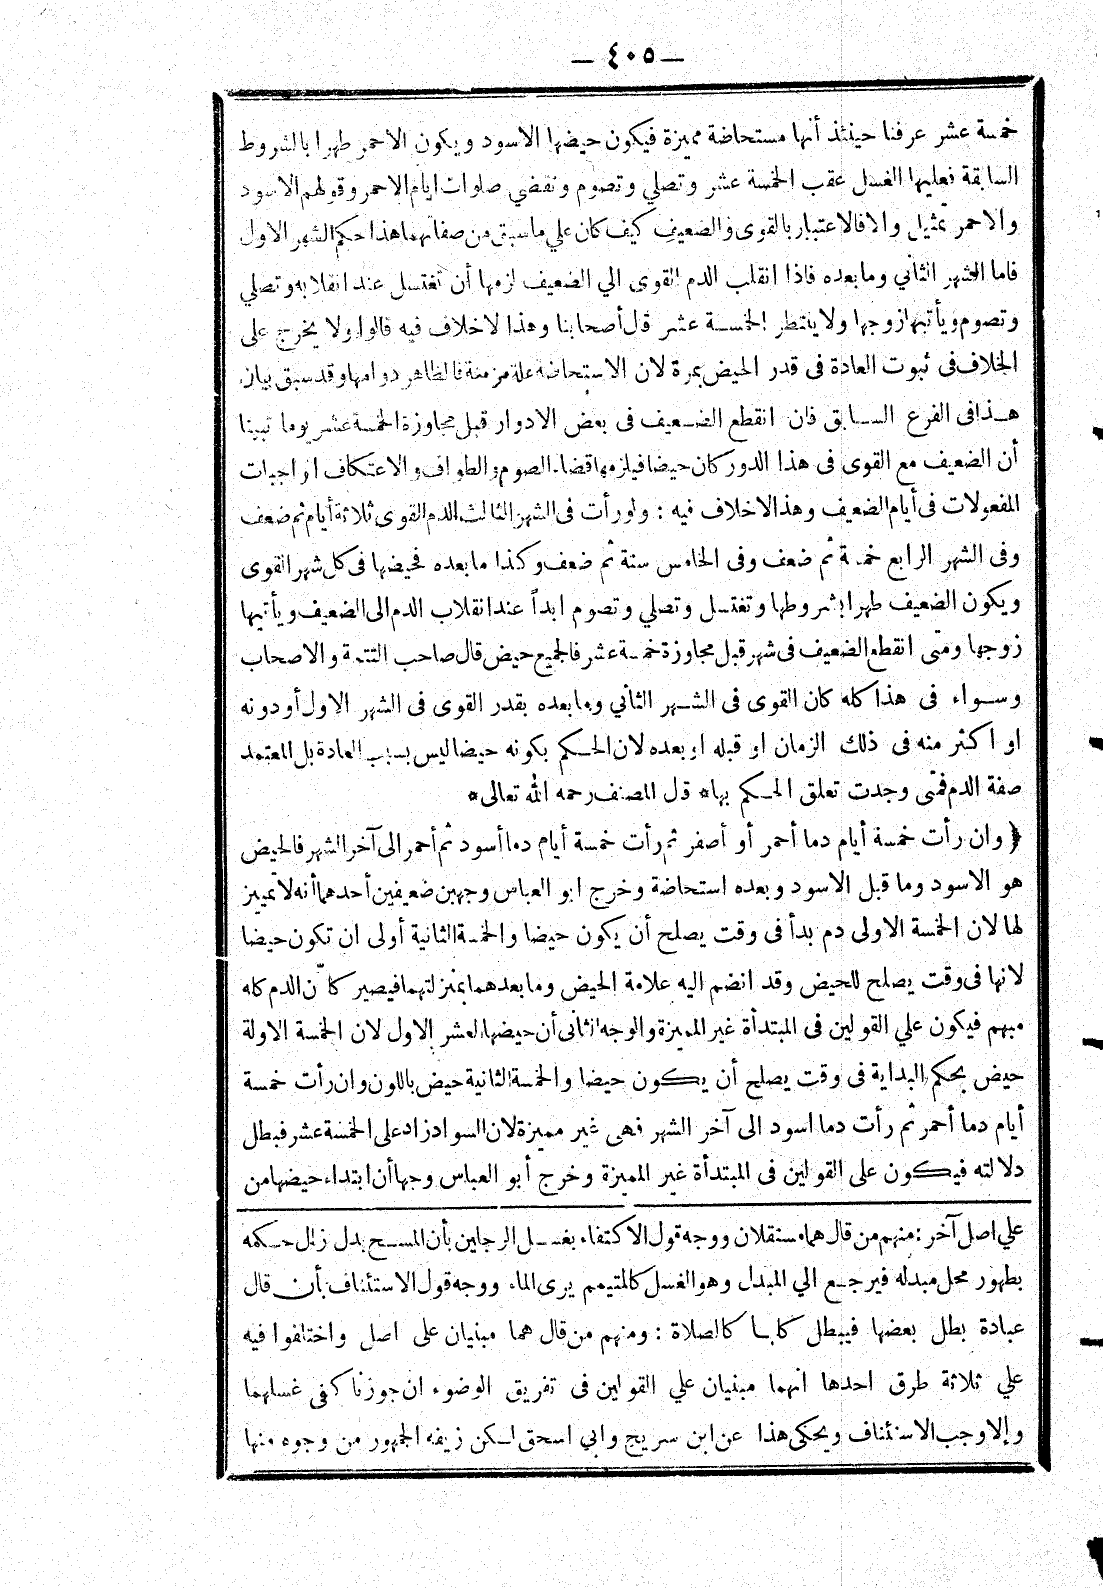 — ٤٠٥ —
خمسة عشر عرفنا حينئذ أنها مستحاضة مميزة فيكون حيضها الاسود ويكون الاحمر طهرا بالشروط
السابقة فعليها الغسل عقب الخمسة عشر وتصلي وتصوم وتقضي صلوات ايام الاحمر وقولهم الاسود
والاحمر تمثيل والا فالاعتبار بالقوى والضعيف كيف كان علي ما سبق من صفاتهما هذا حكم الشهر الاول
فاما الشهر الثاني وما بعده فاذا انقلب الدم القوى الي الضعيف لزمها أن تغتسل عند انقلابه وتصلي
وتصوم ويأتيها زوجها ولا ينتظر الخمسة عشر قال أصحابنا وهذا لاخلاف فيه قالوا ولا يخرج على
الخلاف فى ثبوت العادة فى قدر الحيض بمرة لان الاستحاضة علة مزمنة فالظاهر دوامها وقد سبق بيان
هذا فى الفرع السابق فان انقطع الضعيف فى بعض الادوار قبل مجاوزة الخمسة عشر يوما تبينا
أن الضعيف مع القوى فى هذا الدور كان حيضا فيلزمها قضاء الصوم والطواف والاعتكاف الواجبات
المفعولات فى أيام الضعيف وهذا لاخلاف فيه : ولو رأت فى الشهر الثالث الدم القوى ثلاثة أيام ثم ضعف
وفى الشهر الرابع خمسة ثم ضعف وفى الخامس ستة ثم ضعف وكذا ما بعده فحيضها فى كل شهر القوى
ويكون الضعيف طهرا بشروطها وتغتسل وتصلي وتصوم ابداً عند انقلاب الدم الى الضعيف ويأتيها
زوجها ومتى انقطع الضعيف فى شهر قبل مجاوزة خمسة عشر فالجميع حيض قال صاحب التتمة والاصحاب
وسواء فى هذا كله كان القوى فى الشهر الثاني وما بعده بقدر القوى فى الشهر الاول أو دونه
او اكثر منه فى ذلك الزمان او قبله او بعده لان الحكم بكونه حيضا ليس بسبب العادة بل المعتمد
صفة الدم فمتى وجدت تعلق الحكم بها * قال المصنف رحمه الله تعالى *
﴿ وان رأت خمسة أيام دما أحمر أو أصفر ثم رأت خمسة أيام دما أسود ثم أحمر الى آخر الشهر فالحيض
هو الاسود وما قبل الاسود وبعده استحاضة وخرج ابو العباس وجهين ضعيفين أحدهما أنه لا تمييز
لها لان الخمسة الاولى دم بدأ فى وقت يصلح أن يكون حيضا والخمسة الثانية أولى ان تكون حيضا
لانها فى وقت يصلح للحيض وقد انضم اليه علامة الحيض وما بعدهما بمنزلتهما فيصير كأن الدم كله
مبهم فيكون علي القولين فى المبتدأة غير المميزة والوجه الثانى أن حيضها العشر الاول لان الخمسة الاولة
حيض بحكم البداية فى وقت يصلح أن يكون حيضا والخمسة الثانية حيض باللون وان رأت خمسة
أيام دما أحمر ثم رأت دما اسود الى آخر الشهر فهى غير مميزة لان السواد زاد على الخمسة عشر فبطل
دلالته فيكون على القولين فى المبتدأة غير المميزة وخرج أبو العباس وجها أن ابتداء حيضها من
علي اصل آخر : منهم من قال هما مستقلان ووجه قول الاكتفاء بغسل الرجلين بأن المسح بدل زال حكمه
بطهور محل مبدله فيرجع الي المبدل وهو الغسل كالمتيمم يرى الماء ووجه قول الاستئناف بأن قال
عبادة بطل بعضها فيبطل كلها كالصلاة : ومنهم من قال هما مبنيان على اصل واختلفوا فيه
علي ثلاثة طرق احدها انهما مبنيان علي القولين فى تفريق الوضوء ان جوزنا كفى غسلهما
والا وجب الاستئناف ويحكى هذا عن ابن سريج وابي اسحق لكن زيفه الجمهور من وجوه منها